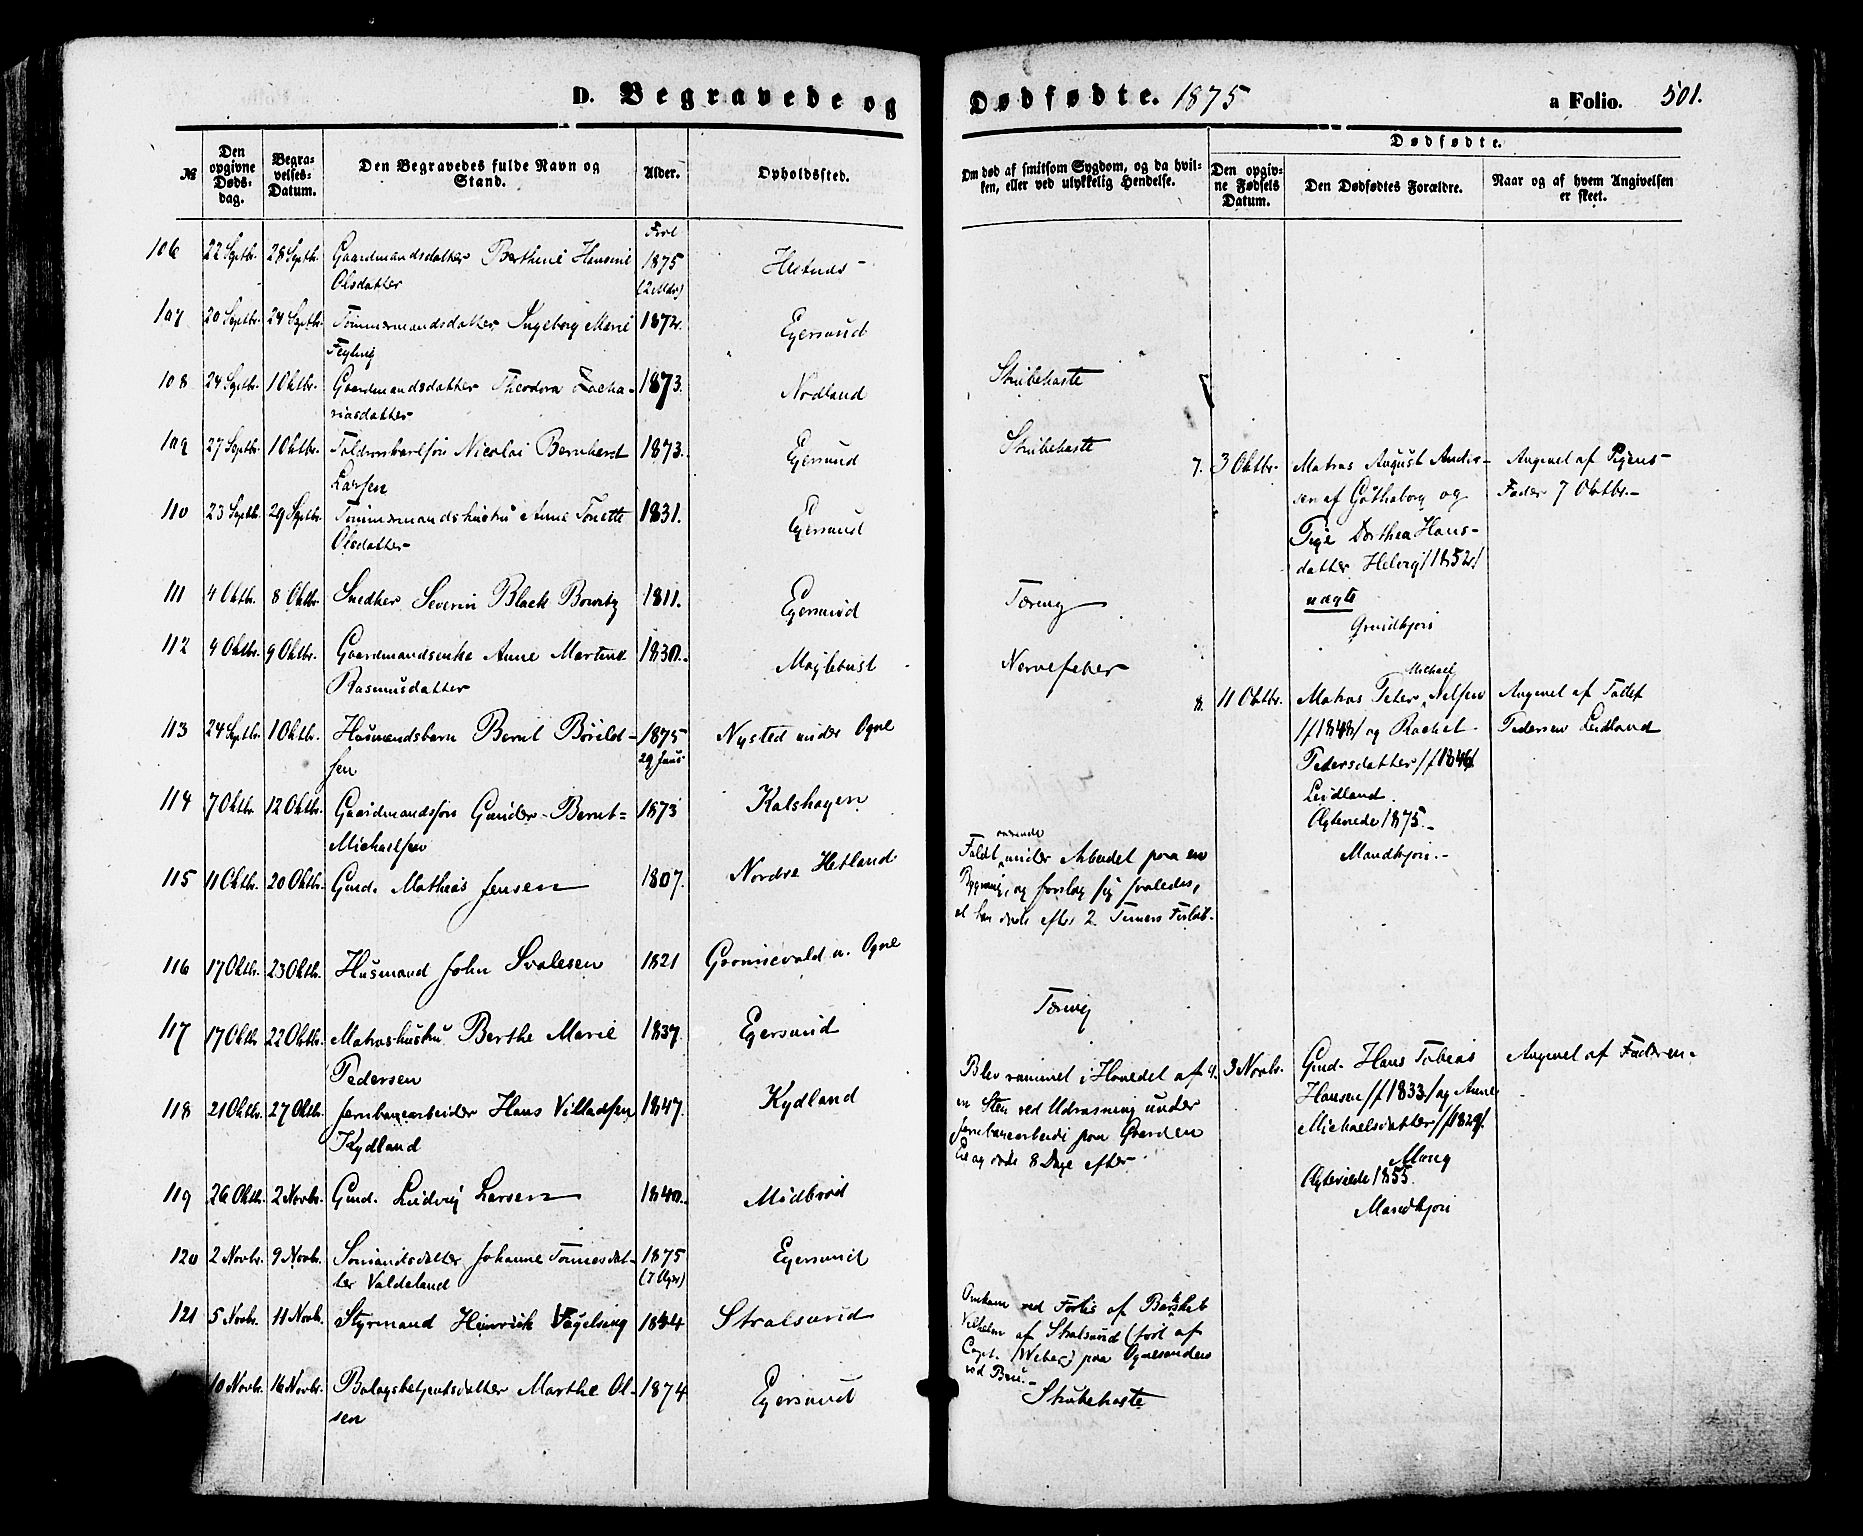 D. Begravede og Dødfødte. 1875 a Folio. 501.
Dødfødte.
№ Den opgivne Døds-dag. Begra-velses-Datum. Den Begravedes fulde Navn og Stand. Alder. Opholdssted. Om død af smitsom Sygdom, og da hvil-ken, eller ved ulykkelig Hendelse. Den opgiv-ne Fødsels Datum. Den Dødfødtes Forældre. Naar og af hvem Angivelsen er skeet.
106 22 Septbr. 28 Septbr. Gaardmandsdatter Berthine Hansine 1875
Olsdatter (2 Mdr)
107 20 Septbr. 24 Septbr. Tømmermandsdatter Ingeborg Marie 1872. Egersund
Feyling
108 24 Septbr. 1 Oktbr. Gaardmandsdatter Theodora Zacha- 1873. Nodland Strubehoste
riasdatter
109 27 Septbr. 1 Oktbr. Nicolai Bernhard 1873. Egersund Strubehoste
Larsen
110 23 Septbr. 29 Septbr. Tømmermandshustru Anne Tonette 1831. Egersund
Olsdatter
111 4 Oktbr. 8 Oktbr Snedker Severin Black 1811. Egersund Tæring
112 4 Oktbr. 9 Oktbr. Gaardmandsenke Anne Martine 1830. Nervefeber
Rasmusdatter
113 24 Septbr. 1 Oktbr. Husmandsbarn Bernt Bøild- 1875 Nysted under Ogne
sen 29 Juni
114 7 Oktbr. 12 Oktbr. Gaardmandssøn Gunder Bernt- 1873 Kalshagen
Michaelsen
115 11 Oktbr. 20 Oktbr. Gmd. Mathias Jensen 1807. Nordre Hetland
Faldt under Arbeidet paa en
Bygning, og forslog sig saaledes,
at han døde efter 2 Timers Forløb.
116 17 Oktbr. 23 Oktbr. Husmand John Svalesen 1821 u. Ogne
117 17 Oktbr 22 Oktbr. Matroshustru Berthe Marie 1837. Egersund Tæring
Pedersen
118 21 Oktbr. 27 Oktbr. Jernbanearbeider Hans Villadsen 1847. Kydland
Kydland
Blev rammet i Hovedet af
en Sten ved Udrasning under
Jernbanearbeide paa Gaarden
og døde 8 Dage efter
119 26 Oktbr. 2 Novbr. Gmd. Ludvig Larsen 1840. Midbrød
120 2 Novbr. 9 Novbr. Johanne Tønnesdat- 1875 Egersund
ter Valdeland
121 5 Novbr. 11 Novbr. Styrmand Hinrich 1844 Stralsund
Omkom ved Forlis af
Vilhelm af Stralsund (ført af
Capt. Weber) paa Ognesanden
10 Novbr. 16 Novbr. Marthe Ol- 1874 Egersund Strubehoste
sen
7. 3 Oktbr. Matros August Ander- Angivet af Pigens
sen af Gøthaborg og Fader 7 Oktbr.
Pige Dorthea Hans-
datter Helvig /1852/
uægte
8. 11 Oktbr. Matros Peter Michael Nilsen Angivet af Tadef
/f 1848/ og Rachel Pedersen Leidland
Pedersdatter /f 1846/
Leidland.
Ægteviede 1875.
Mandkjøn.
9. 3 Novbr. Gmd. Hans Tobias Angivet af Faderen.
Hansen /f 1833/ og Anne
Michaelsdatter /f 1829/.
Mong
Ægteviede 1855.
Mandkjøn